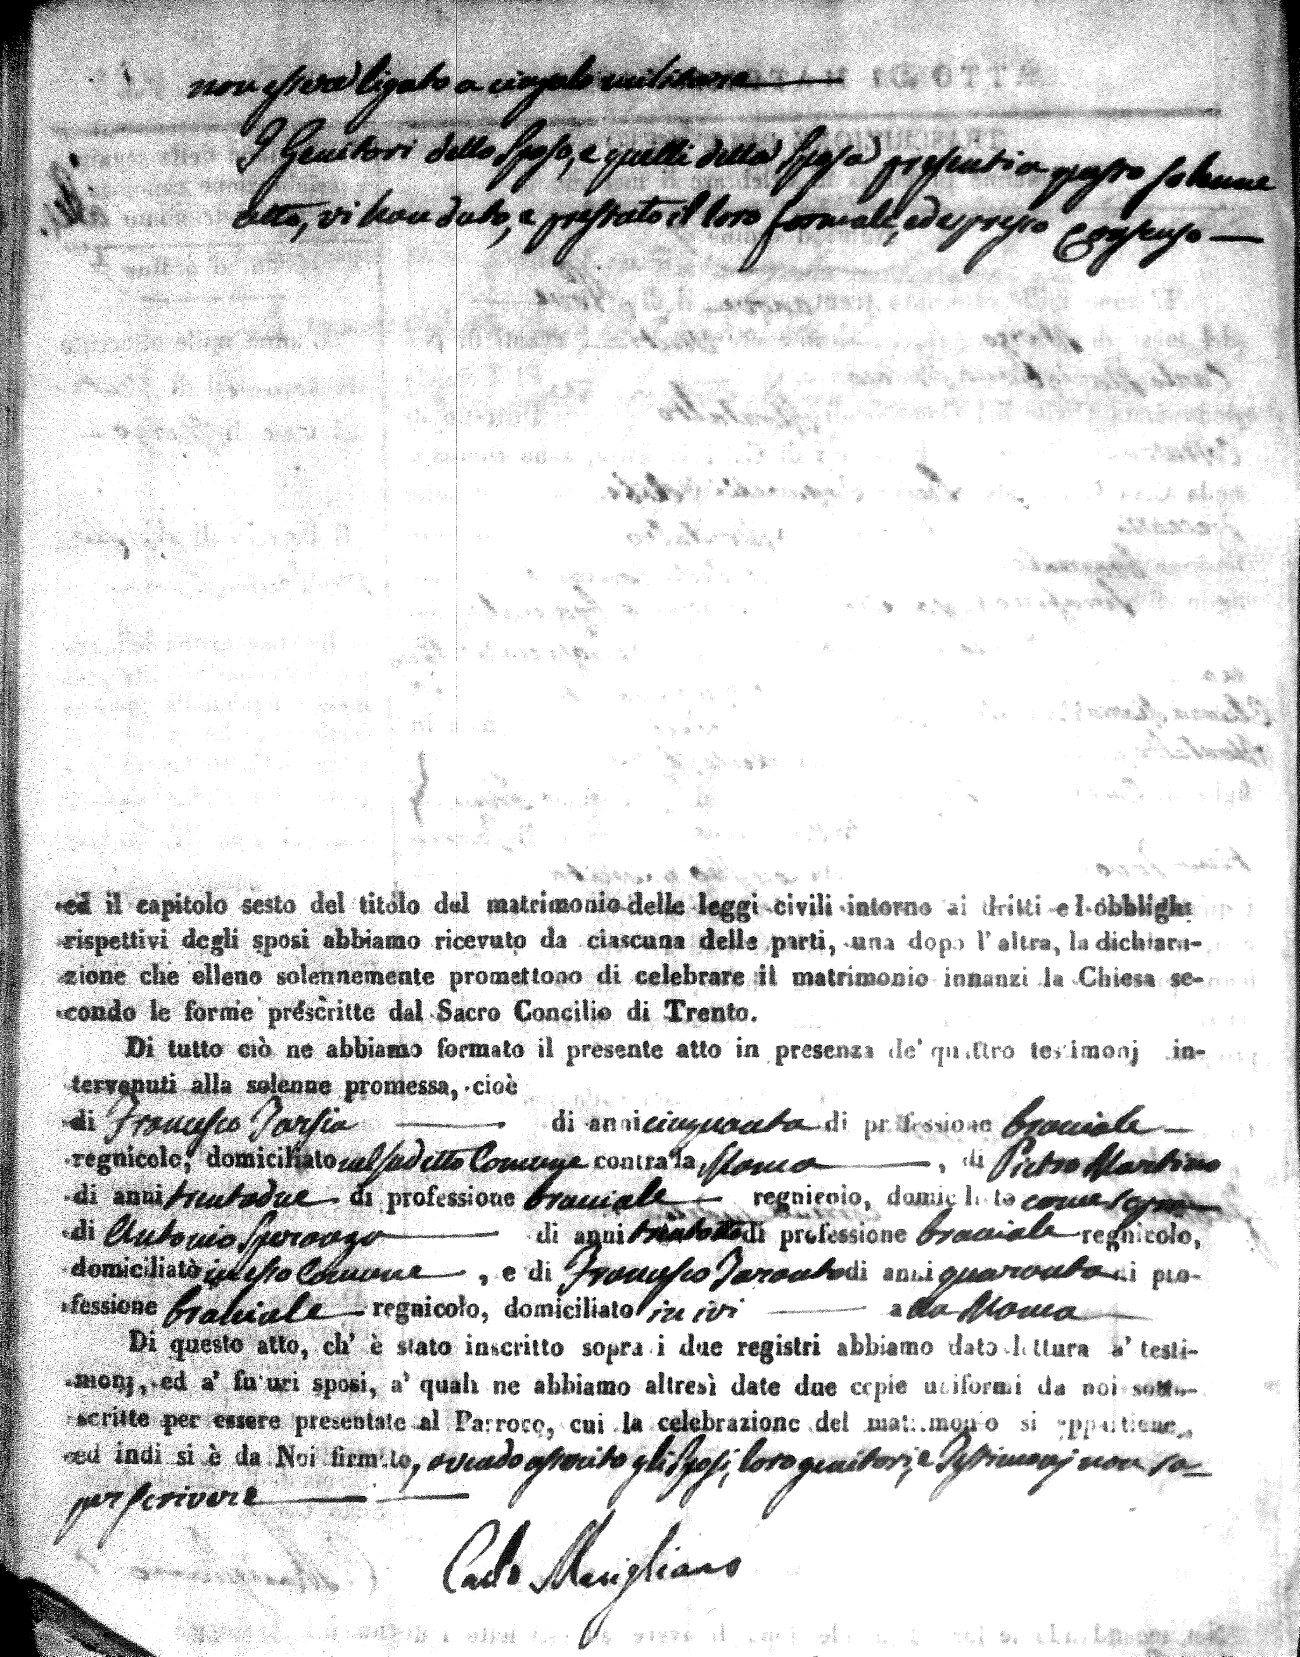 non essere ligato a cingolo militare
I Genitori dello Sposo, e quelli della Sposa presenti a questo solenne
atto, vi han dato, e prestato il loro formale, ed espresso Consenso
ed il capitolo sesto del titolo del matrimonio delle leggi civili intorno ai dritti e l obblighi
rispettivi degli sposi abbiamo ricevuto da ciascuna delle parti, una dopo l' altra, la dichiara-
zione che elleno solennemente promettono di celebrare il matrimonio innanzi la Chiesa se-
condo le forme prescritte dal Sacro Concilio di Trento.
Di tutto ciò ne abbiamo formato il presente atto in presenza de' quattro testimonj in-
tervenuti alla solenne promessa, cioè
di Francesco Tarsia di anni cinquanta di professione bracciale
regnicolo, domiciliato nel sudetto Comune contrada , di Pietro Martino
di anni trentadue di professione bracciale regnicolo, domiciliato come sopra
di Antonio Speranza di anni di professione bracciale regnicolo,
domiciliato in esso Comune , e di Francesco Taranto di anni quaranta di pro-
fessione bracciale regnicolo, domiciliato ivi a
Di questo atto, ch' è stato inscritto sopra i due registri abbiamo dato lettura a' testi-
monj, ed a' futuri sposi, a' quali ne abbiamo altresì date due copie uniformi da noi sotto-
scritte per essere presentate al Parroco, cui la celebrazione del matrimonio si appartiene,
ed indi si è da Noi firmato, avendo asserito gli Sposi, loro genitori, e Testimonj non sa-
per scrivere
Carlo Marigliano